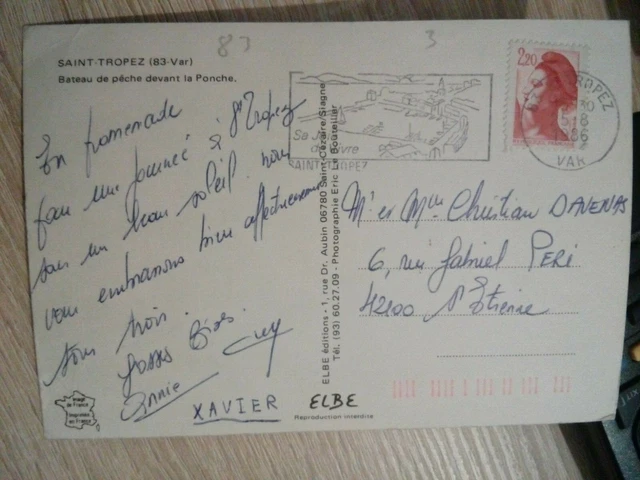 83
3
SAINT-TROPEZ (83-Var)
Bateau de pêche devant la Ponche.
En promenade
pour une journée à St Tropez
sous un beau soleil nous
vous embrassons bien affectueusement
tous trois.
Grosses Bises.
Annie Guy
XAVIER
ELBE
Reproduction interdite
ELBE éditions - 1, rue Dr. Aubin 06780 Saint-Cézaire/Siagne
Tél. (93) 60.27.09 - Photographie Eric Le Bouteiller
SAINT-TROPEZ
2,20
TROPEZ
5-8
VAR
Mr et Mme Christian DAVENAS
6, rue Gabriel PERI
42100 St Etienne
Image
de France
Imprimée
en France